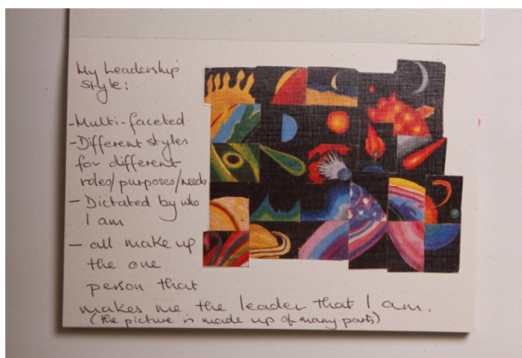 My Leadership
Style:
- Multi-faceted
- Different styles
for different
roles/purposes/needs
- Dictated by who
I am
- all make up
the one
person that
makes me the leader that I am.
(the picture is made up of many parts)